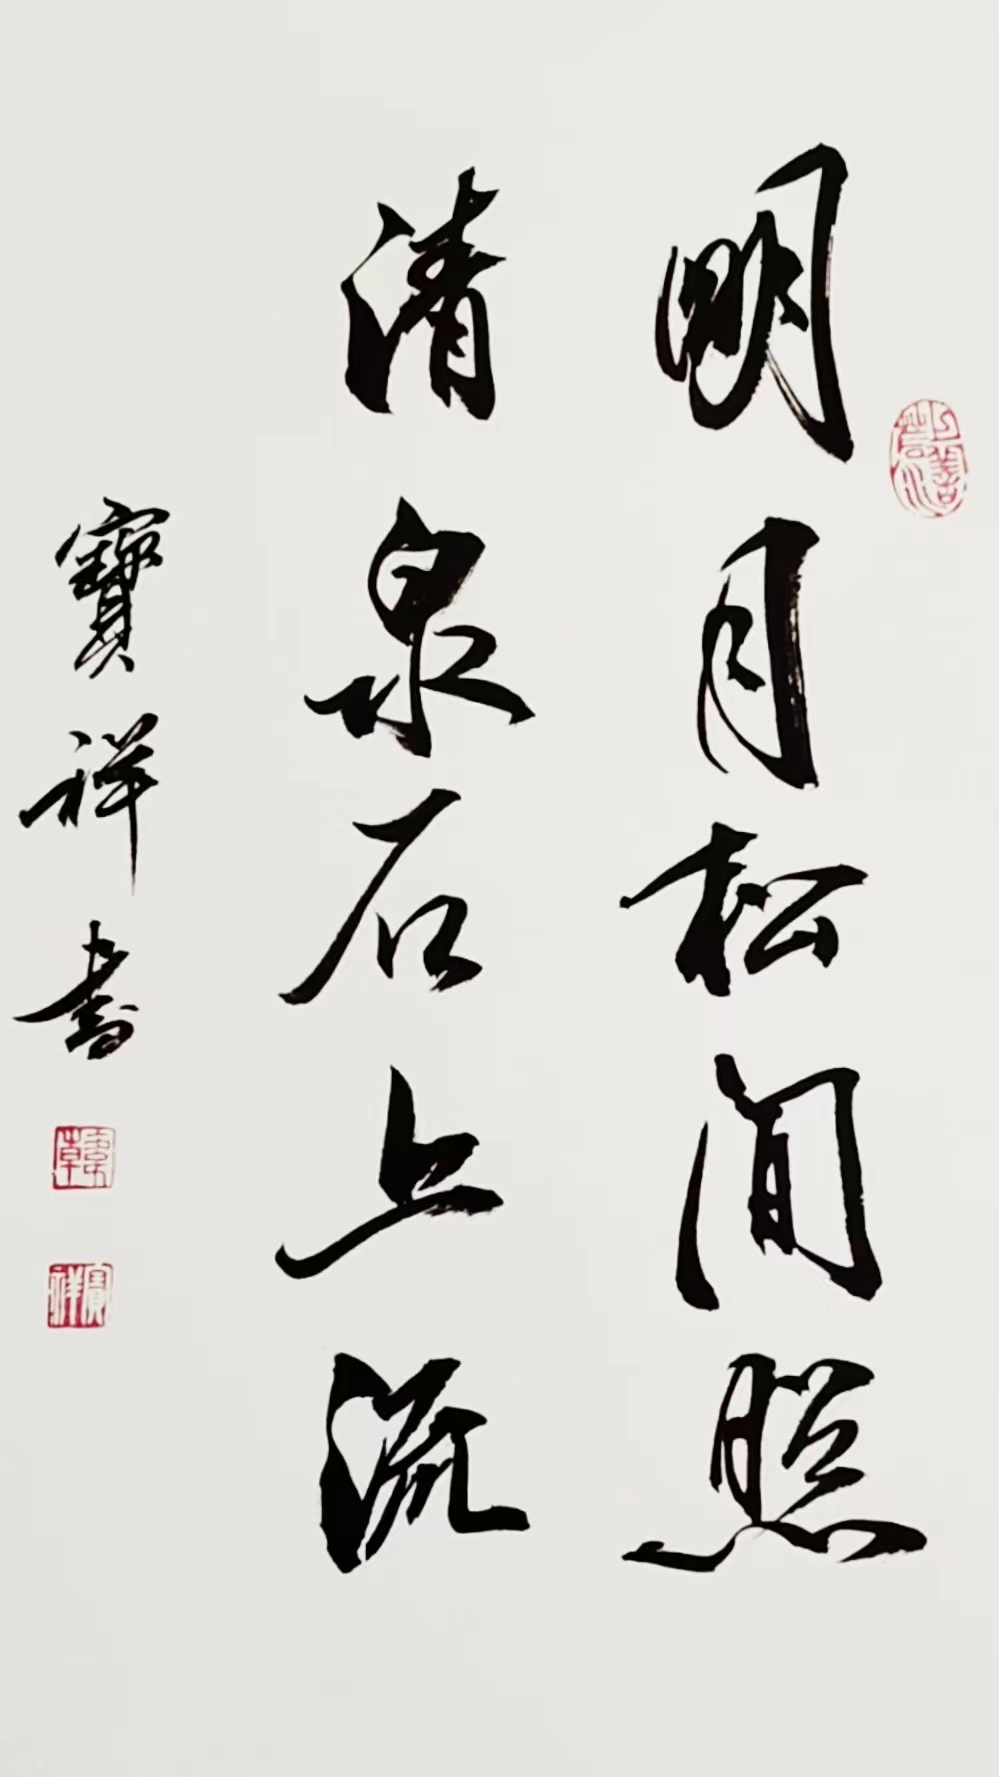 明月松间照
清泉石上流
寶祥書
寶祥